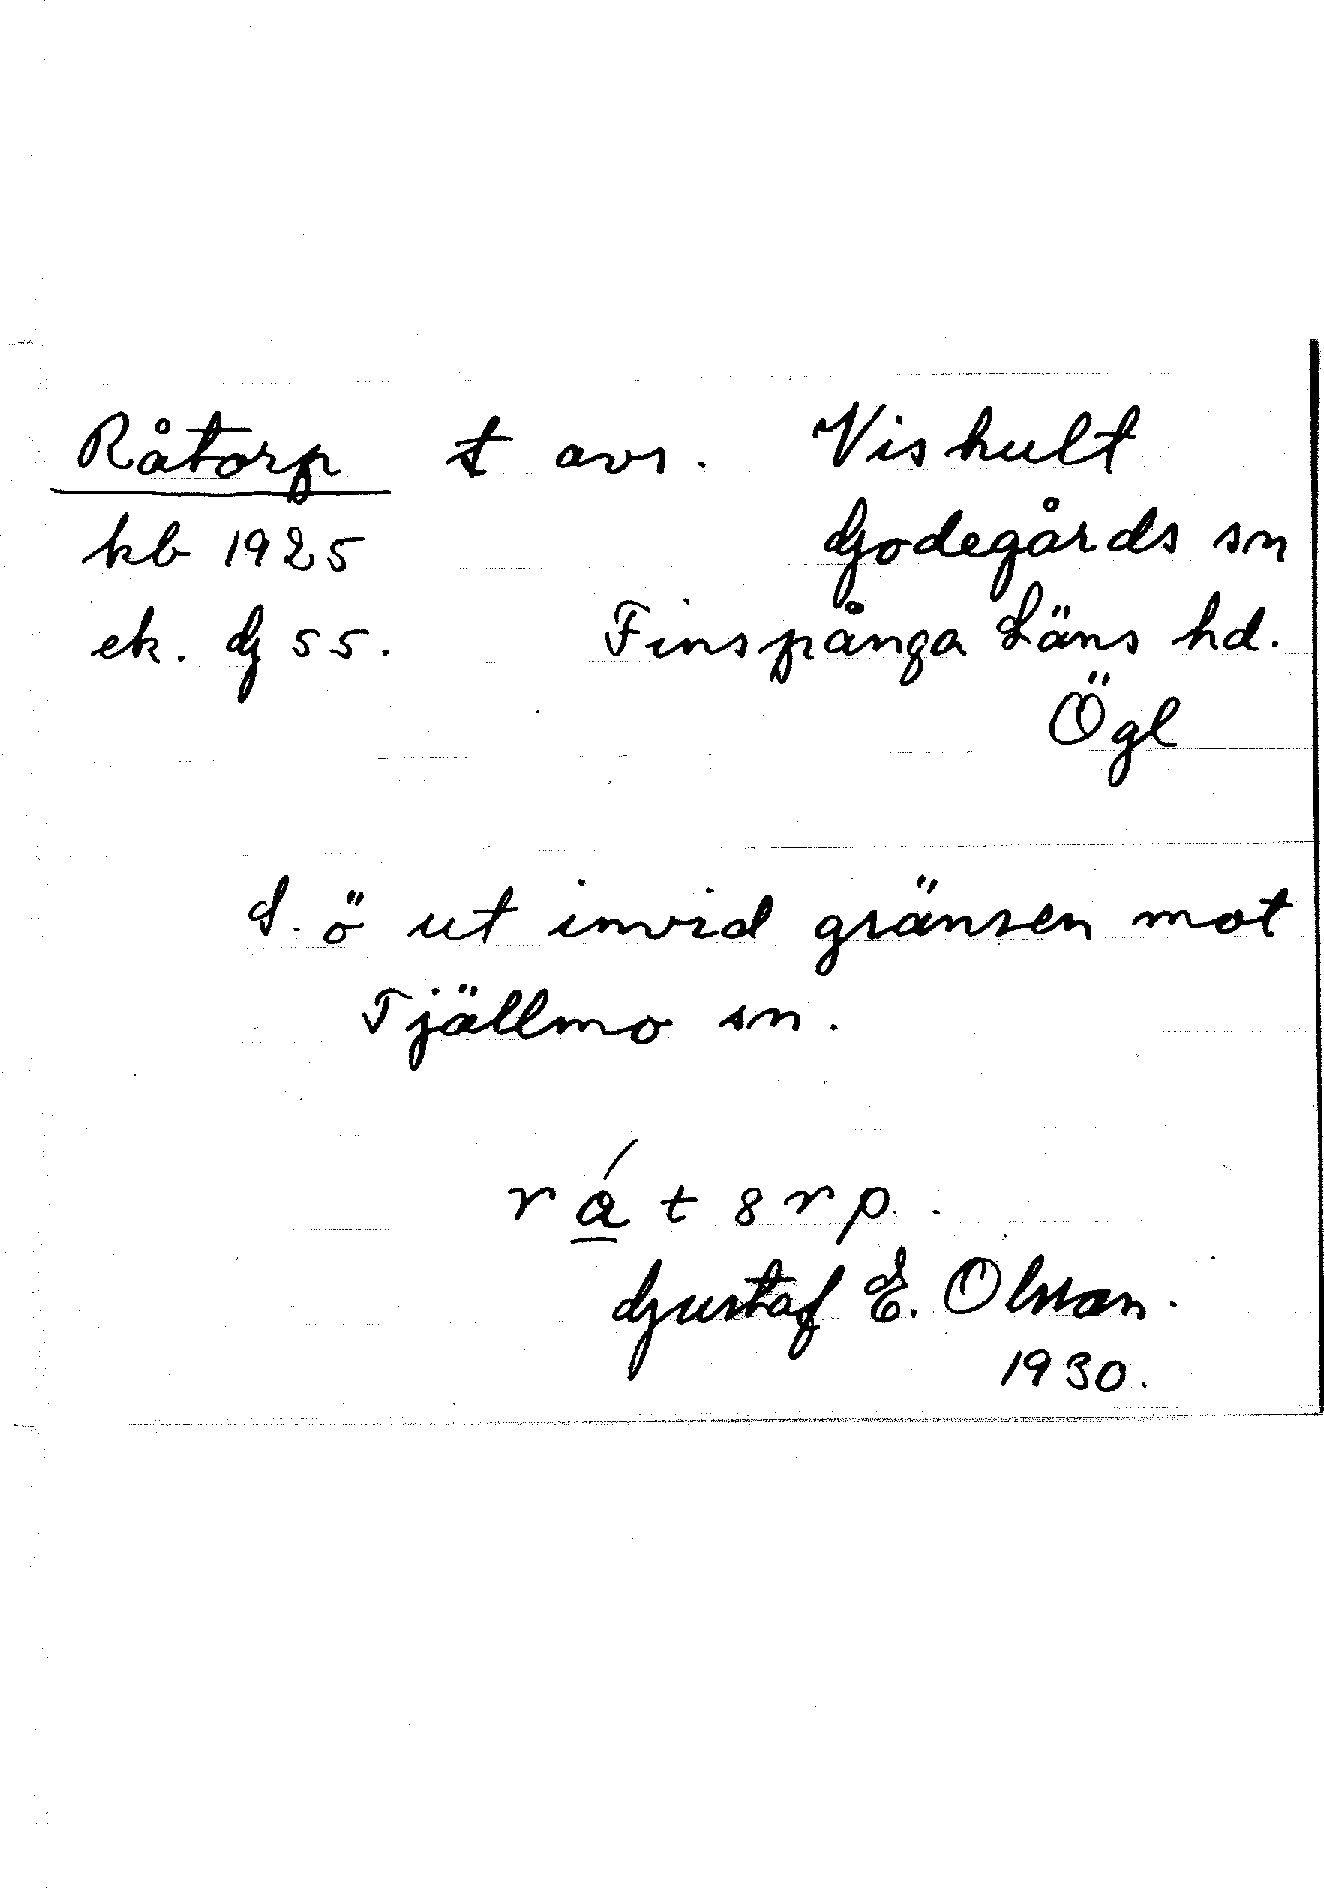 Råtorp t avs. Vishult
kb 1925 Godegårds sn
ek. G 55. Finspånga Läns hd.
Ögl
S. ö ut invid gränsen mot
Tjällmo sn.
rá̲t8rp.
Gustaf E. Olsson.
1930.